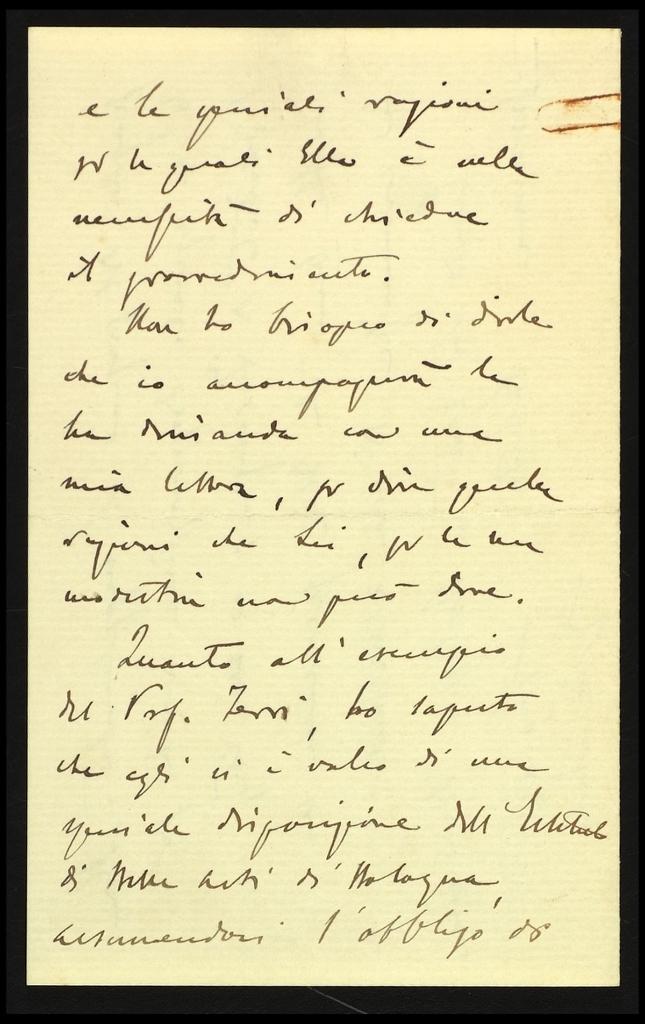 e le speciali ragioni
per le quali Ella è nella
necessità di chiedere
il provvedimento.
Non ho bisogno di dirle
che io accompagnerò la
sua domanda con una
mia lettera, per dire quelle
ragioni che Lei, per la sua
modestia non può dire.
Quanto all'esempio
del Prof. Ferri, ho saputo
che egli si è valso di una
speciale disposizione dell'Istituto
di Belle Arti di Bologna,
assumendosi l'obbligo di